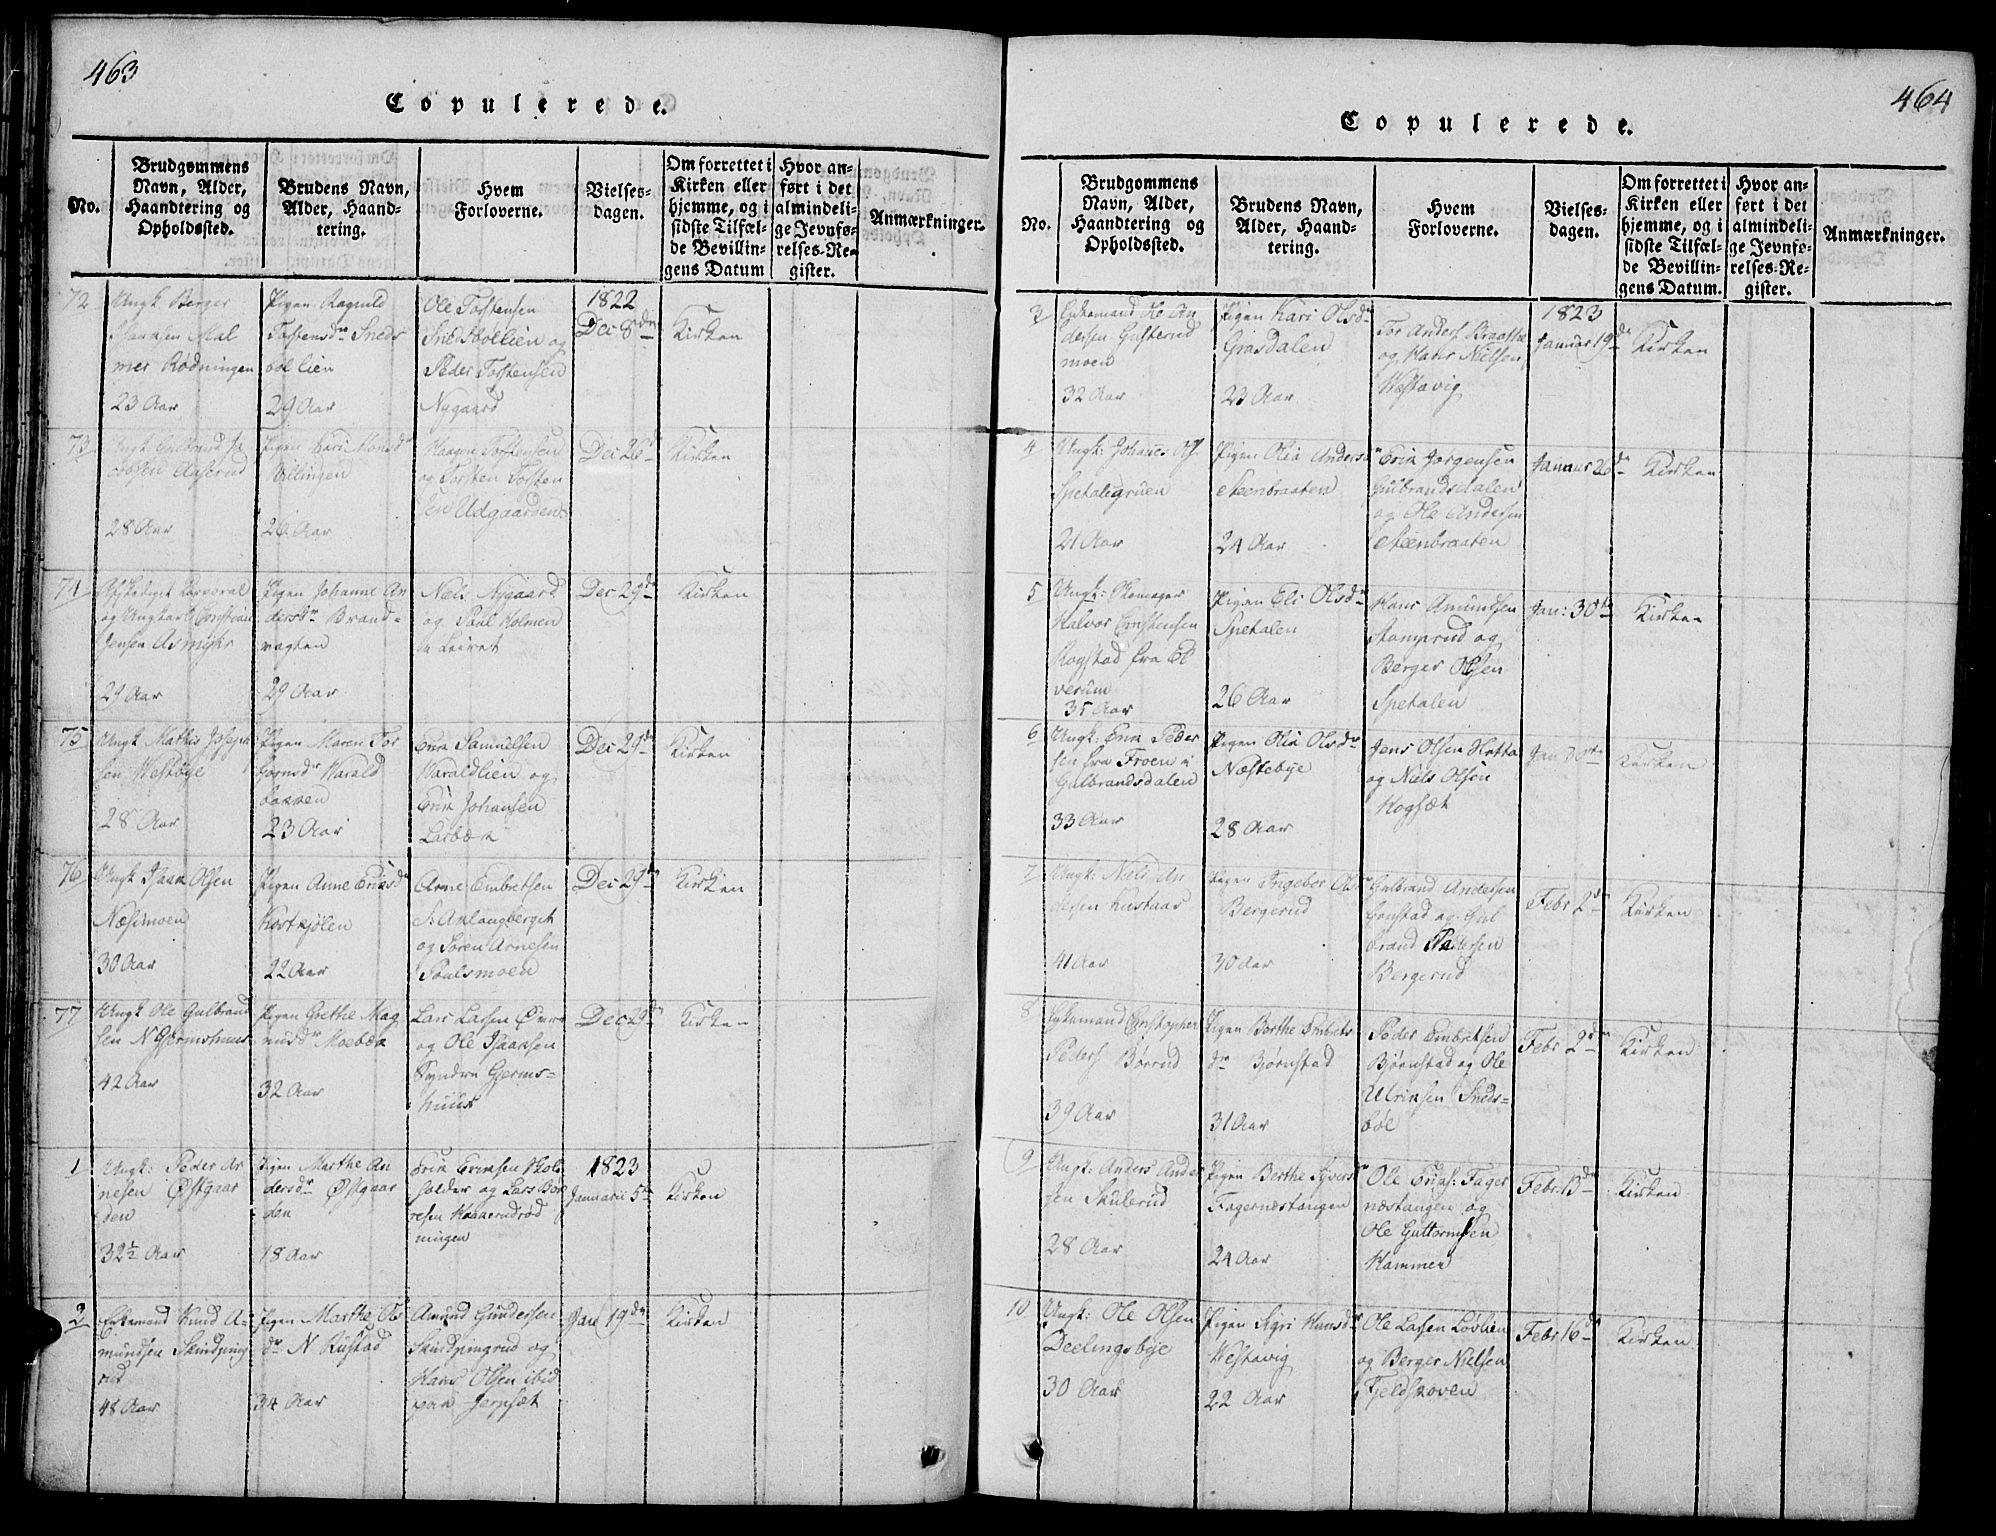 463
Copulerede.
No.
Brudgommens
Navn, Alder,
Haandtering og
Opholdssted.
Brudens Navn,
Alder, Haand-
tering.
Hvem
Forloverne.
Vielses-
dagen.
Om forrettet i
Kirken eller
hjemme, og i
sidste Tilfæl-
de Bevillin-
gens Datum
Hvor an-
ført i det
almindeli-
ge Jevnfø-
relses-Re-
gister.
Anmærkninger.
72
Ungk Berger
mer Rødningen
23 Aar
Pigen Ragnild
Tostensdr Sneds
böl lien
29 Aar
Ole Tostensen
Snedsböllien og
Peder Tostensen
Nygaard
1822
Dec 8de
Kirken
73
Ungk Gulbrand
28 Aar
Pigen Kari
26 Aar
Haagen Tostensen
og Torsten Torsten
sen Udgaarden
Dec 26
Kirken
74
Afskediget Corporal
og Ungkarl Christian
Jensen Asmyhr
29 Aar
Pigen Johanne An
dersdr Brand-
vagten
29 Aar
Niels Nygaard
og Poul Holmen
Dec 29de
Kirken
75
Ungk Mathis Joseph
sen Westbye
28 Aar
Pigen Maren Tor
Harald
bakken
23 Aar
Erik Samuelsen
Haraldlien og
Erik Johansen
Dec 29de
Kirken
76
Ungk Isaak Olsen
Næsmoen
30 Aar
Pigen Anne Eriksdr
22 Aar
Arne Embretsen
og Søren Arnesen
Poulsmoen
Dec 29de
Kirken
77
Ungk Ole Gulbrand
sen N Gjermshuus
42 Aar
Pigen Goethe Mag
nusdr Moebæk
32 Aar
Lars Larsen
og Ole Isaaksen
Syndre Gjerms-
huus
Dec 29de
Kirken
1
Ungk: Peder Ar
nesen Østgaar
den
32½ Aar
Pigen Marthe An
dersdr Østgaar
den
18 Aar
Erik Eriksen Skole
holder og Lars
ningen
1823
Januarii 5te
Kirken
2
Enkemand Knud A-
mundsen
rud
48 Aar
Pigen Marthe Ols
dr N Rustad
34 Aar
Amund Gundersen
og
Hans Olsen ibid
Jan 19de
Kirken
464
Copulerede.
No.
Brudgommens
Navn, Alder,
Haandtering og
Opholdssted.
Brudens Navn,
Alder, Haand-
tering.
Hvem
Forloverne.
Vielses-
dagen.
Om forrettet i
Kirken eller
hjemme, og i
sidste Tilfæl-
de Bevillin-
gens Datum.
Hvor an-
ført i det
almindeli-
ge Jevnfø-
relses-Re-
gister.
Anmærkninger.
3
Enkemand Ole An
dersen Gusterud
moen
32 Aar
Pigen Kari Olsdr
Grasdalen
23 Aar
Tor Anders
og Hans Nielsen
Westavig
1823
Januar 19de
Kirken
4
Ungk: Johannes Ols
Spetalsgruen
21 Aar
Pigen Olia Andersdr
Steenbraaten
24 Aar
Erik Jørgensen
Gulbrandsdalen
og Ole Andersen
Steenbraaten
Januar
Kirken
5
Ungk: Skomager
Halvor Christensen
Rogstad fra El
verum
35 Aar
Pigen Eli Olsdr
Spetalen
26 Aar
Hans Amundsen
Stamprud og
Berger Olsen
Spetalen
Jan: 30te
Kirken
6
Ungk: Erik Peder
sen fra Froen i
Gulbrandsdalen
33 Aar
Pigen Olia Olsdr
Næstebye
28 Aar
Jens Olsen
og Niels Olsen
Hogsæt
Jan 30te
Kirken
7
Ungk: Niels An
dersen Kustaas
41 Aar
Pigen Ingebor Olsdr
Bergerud
30 Aar
Gulbrand Andersen
og Gul
brand Pedersen
Bergerud
Febr 2den
Kirken
8
Enkemand Christopher
Peders Børrud
39 Aar
Pigen Berthe Embrets
dr Bjørnstad
31 Aar
Peder Embretsen
Bjørnstad og Ole
Ulriksen Sneds-
böl
Febr 2den
Kirken
9
Ungk: Anders Ander
sen Skulerud
28 Aar
Pigen Berthe Syversdr
Fagernæstangen
24 Aar
Ole Eriks: Fager
næstangen og
Ole Guttormsen
Hammer
Febr. 13de
Kirken
10
Ungk: Ole Olsen
Deelingsbye
30 Aar
Pigen Sigri Hansdr
Westavig
22 Aar
Ole Larsen Løvlien
og Berger Nielsen
Fjeldskoven
Febr 16de
Kirken